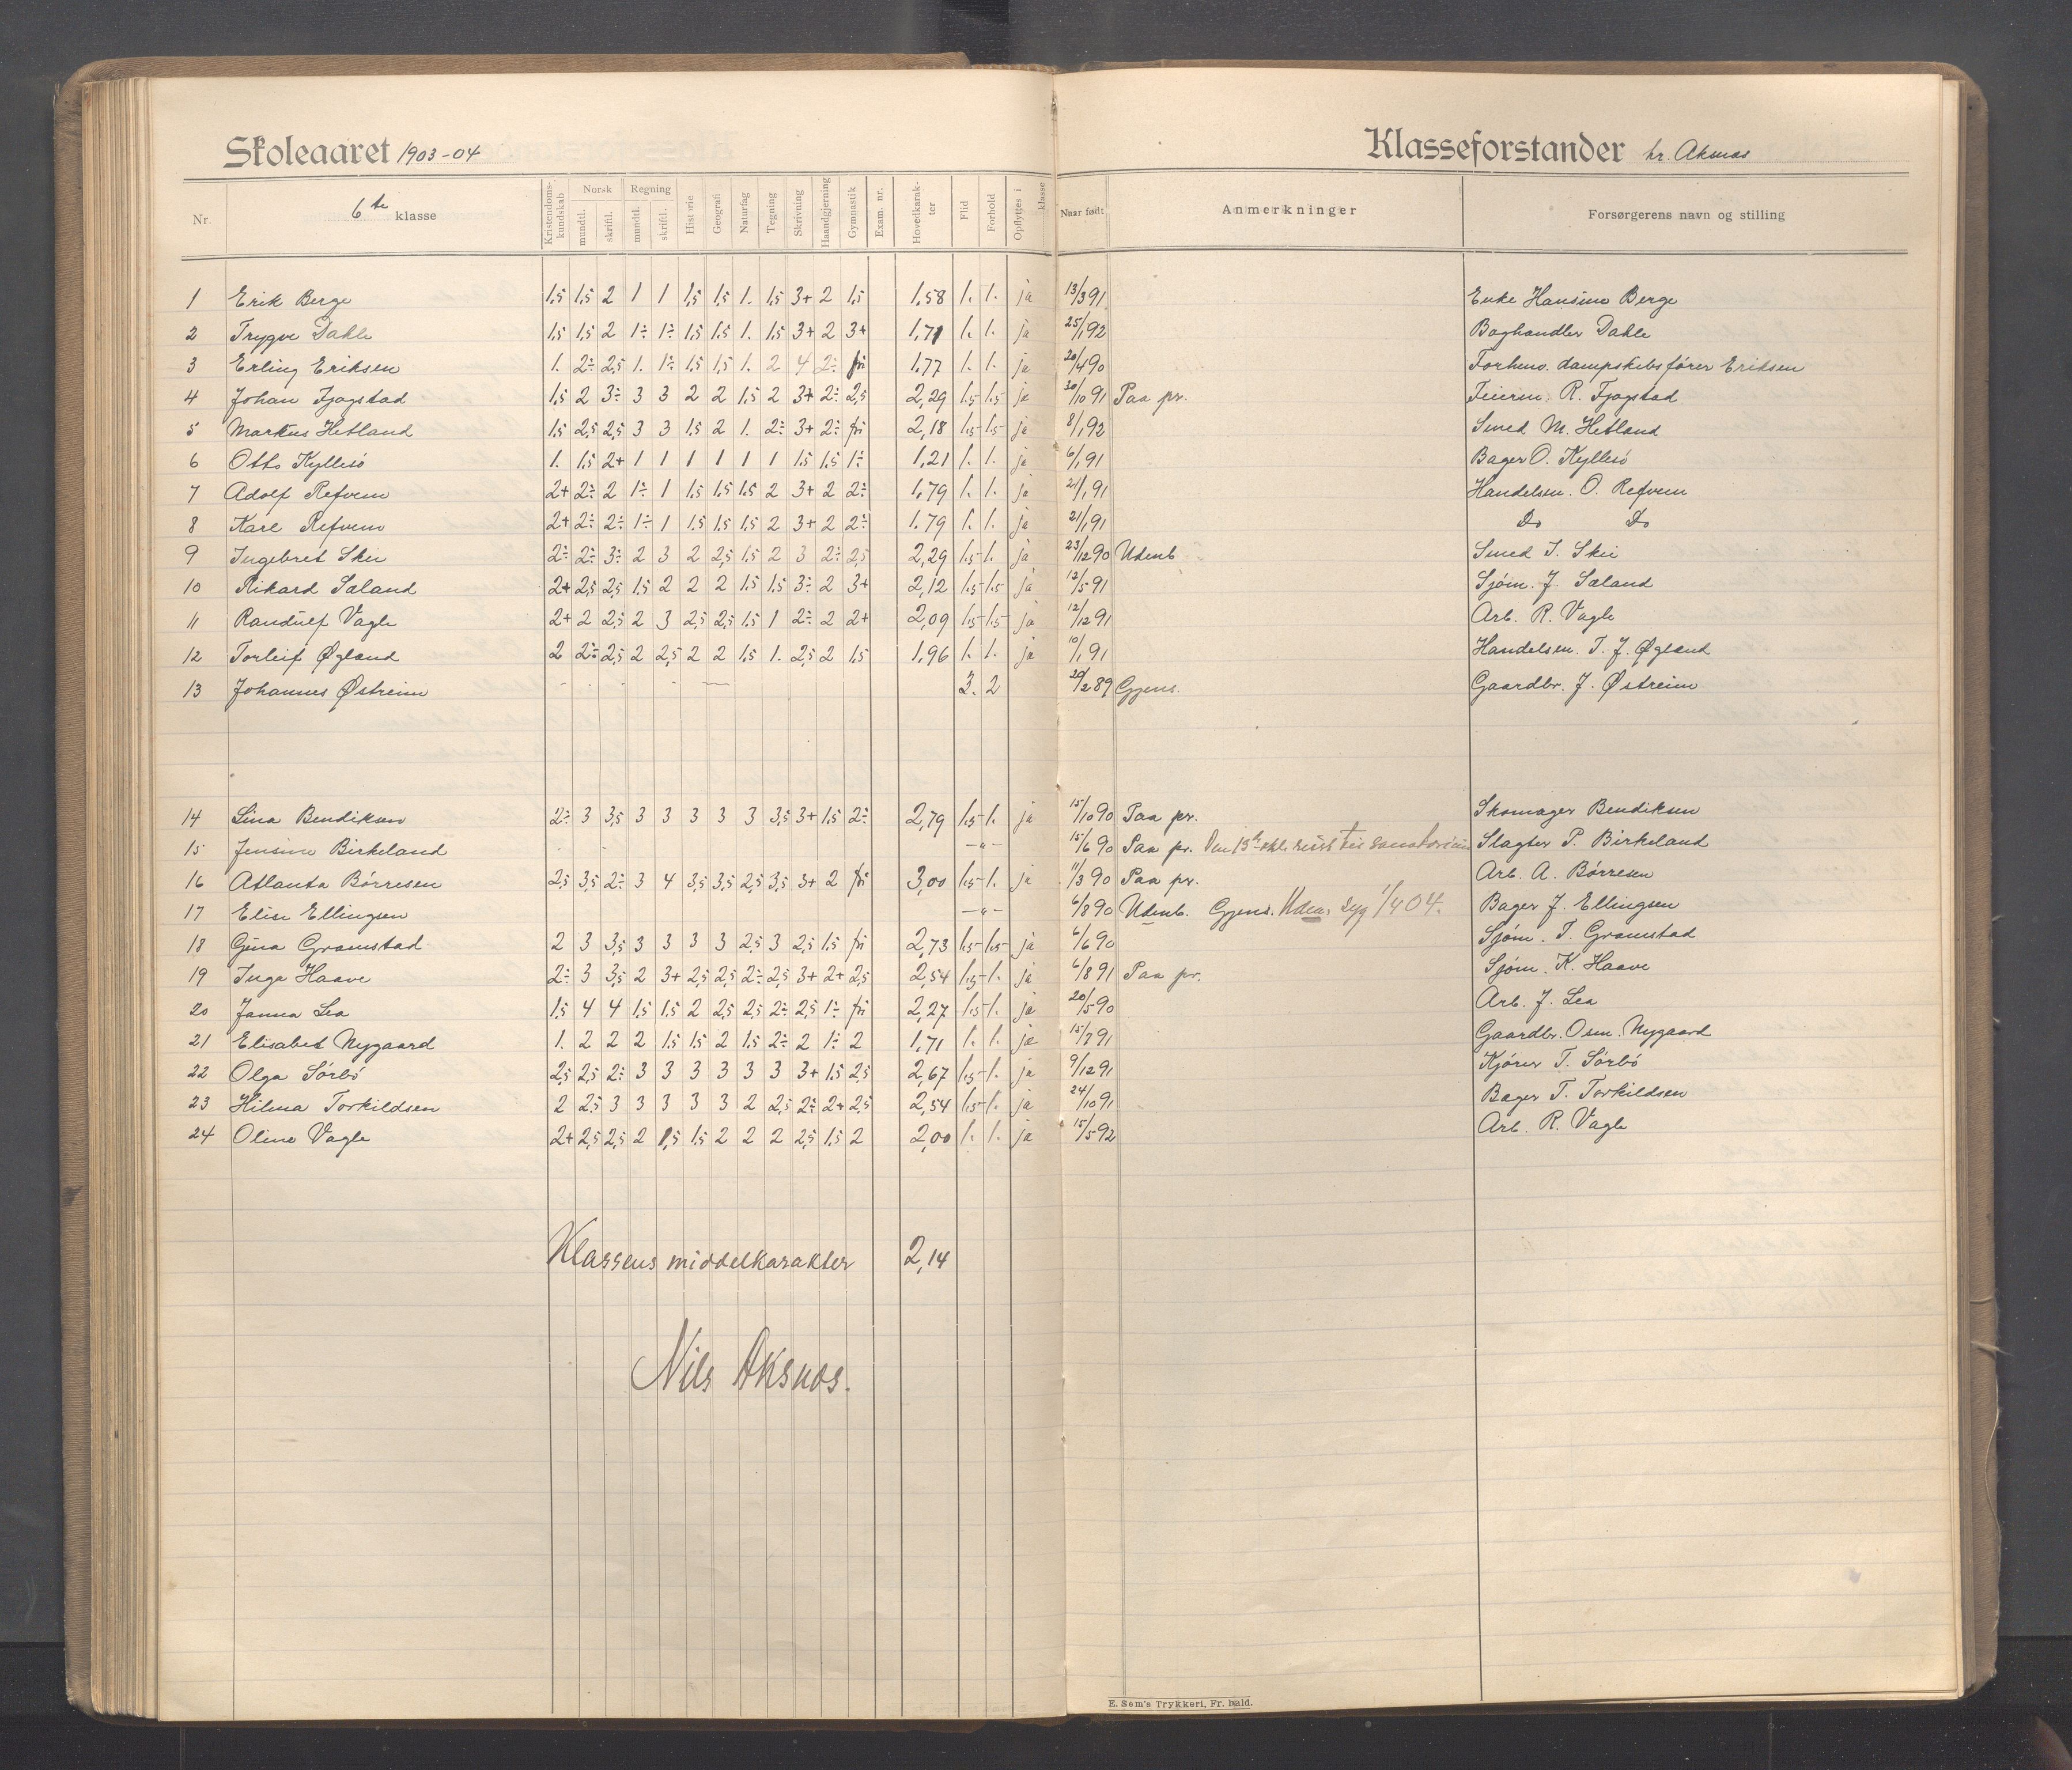 Skoleaaret 1903-04
Klasseforstander hr. Aksnes
Nr. 6te klasse Kristendomskundskab Norsk mundtl. skriftl. Regning mundtl. skriftl. Historie Geografi Naturfag Tegning Skrivning Haandgjerning Gymnastik Exam. nr. Hovedkarakter Flid Forhold Opflyttes i klasse Naar født Anmerkninger Forsørgerens navn og stilling
1 Erik Berge 1,5 1,5 2 1 1 1,5 1,5 1. 1,5 3+ 2 1,5 1,58 1. 1. ja 13/3 91 Enke Hansine Berge
2 Trygve Dahle 1,5 1,5 2 1÷ 1÷ 1,5 1,5 1. 1,5 3+ 2 3+ 1,71 1. 1. ja 25/1 92 Boghandler Dahle
3 Erling Eriksen 1. 2÷ 2,5 1. 1÷ 1,5 1,5 1. 2 4 2÷ fri 1,77 1. 1. ja 20/4 90 Forhenv. dampskibsfører Eriksen
4 Johan Fjogstad 1,5 2 3÷ 3 3 2 2 1,5 2 3+ 2÷ 2,5 2,29 1,5 1,5 ja 30/10 91 Paa pr. Feierm. R. Fjogstad
5 Markus Hetland 1,5 2,5 2,5 3 3 1,5 2 1. 2÷ 3+ 2÷ fri 2,18 1,5 1,5 ja 8/1 92 Smed M. Hetland
6 Otto Kyllesø 1. 1,5 2+ 1 1 1 1 1 1 1,5 1,5 1÷ 1,21 1. 1. ja 6/1 91 Bager O. Kyllesø
7 Adolf Refvem 2+ 2÷ 2 1÷ 1 1,5 1,5 1,5 2 3+ 2 2÷ 1,79 1. 1. ja 21/1 91 Handelsm. O. Refvem
8 Karl Refvem 2+ 2÷ 2÷ 1÷ 1 1,5 1,5 1,5 2 3+ 2 2÷ 1.79 1. 1. ja 21/1 91 Do Do
9 Ingebret Skei 2÷ 2÷ 3÷ 2 3 2 2,5 1,5 2 3 2÷ 2,5 2,29 1,5 1. ja 23/12 90 Udenb Smed I. Skei
10 Rikard Søland 2+ 2,5 2,5 1,5 2 2 2 1,5 1,5 3÷ 2 3+ 2,12 1,5 1,5 ja 12/5 91 Sjøm. J. Søland
11 Randulf Vagle 2+ 2 2,5 2 3 2,5 2,5 1,5 1 2÷ 2 2+ 2,09 1,5 1,5 ja 12/12 91 Arb. R. Vagle
12 Torleif Øgland 2 2÷ 2,5 2 2,5 2 2 1,5 1. 2,5 2 1,5 1,96 1. 1. ja 10/1 91 Handelsm. T. J. Øgland
13 Johannes Østreim 3. 2 20/2 89 Gjens. Gaardbr. J. Østreim
14 Lina Bendiksen 2÷ 3 3,5 3 3 3 3 3 3,5 3+ 1,5 2÷ 2,79 1,5 1. ja 15/10 90 Paa pr. Skomager Bendiksen
15 Jensine Birkeland - - -"- 15/6 90 Paa pr. Den 13de okt. reist til sanatorium Slagter P. Birkeland
16 Atlanta Børresen 2,5 3,5 2÷ 3 4 3,5 3,5 2,5 3,5 3+ 2 fri 3,00 1,5 1. ja 11/3 90 Paa pr. Arb. A. Børresen
17 Elise Ellingsen -"- 6/8 90 Udenb. Gjens. syg 1/4 04. Bager J. Ellingsen
18 Gina Gramstad 2 3 3,5 3 3 3 3 2,5 3 2,5 1,5 fri 2,73 1,5 1,5 ja 6/6 90 Sjøm. T. Gramstad
19 Inga Haave 2÷ 3 3,5 2 3+ 2,5 2,5 2÷ 2,5 3+ 2+ 2,5 2,54 1,5 1. ja 6/8 91 Paa pr. Sjøm. K. Haave
20 Janna Lea 1,5 4 4 1,5 1,5 2 2,5 2,5 2÷ 2,5 1÷ fri 2,27 1,5 1. ja 20/5 90 Arb. J. Lea
21 Elisabet Nygaard 1. 2 2 2 1,5 1,5 2 1,5 2÷ 2 1÷ 2 1,71 1. 1. ja 15/7 91 Gaardbr. Osm. Nygaard
22 Olga Sørbø 2,5 2,5 2÷ 3 3 3 3 3 3 3+ 1,5 2,5 2,67 1,5 1. ja 9/12 91 Kjører T. Sørbø
23 Hilma Torkildsen 2 2,5 3 3 3 3 3 2 2,5 2÷ 2+ 2,5 2,54 1,5 1. ja 24/10 91 Bager T. Torkildsen
24 Oline Vagle 2+ 2,5 2,5 2 1,5 1,5 2 2 2 2,5 1,5 2 2,00 1. 1. ja 15/5 92 Arb. R. Vagle
Klassens middelkarakter 2,14
Nils Aksnes.
E. Sem's Trykkeri, Fr. hald.